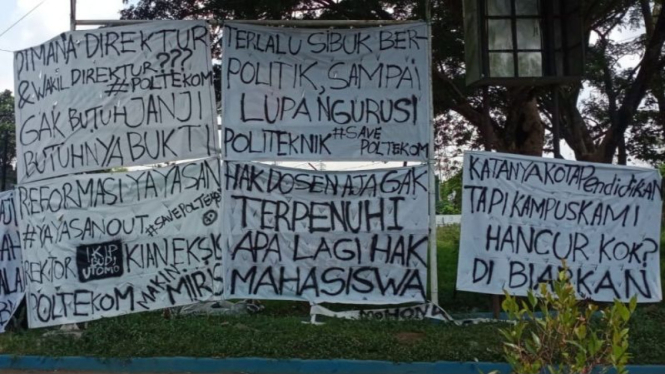 DIMANA DIREKTUR
& WAKIL DIREKTUR???
#POLTEKOM
GAK BUTUH JANJI
BUTUHNYA BUKTI
TERLALU SIBUK BER
POLITIK, SAMPAI
LUPA NGURUSI
POLITEKNIK #SAVE
POLTEKOM
REFORMASI YAYASAN
#YAYASANOUT #SAVEPOLTEKOM
REKTOR IKIP BUDI UTOMO KIAN EKSIS
POLTEKOM MAKIN MIRIS
HAK DOSEN AJA GAK
TERPENUHI
APA LAGI HAK
MAHASISWA
KATANYA KOTA PendidiKAN
TAPI KAMPUS KAMI
HANCUR KOK?
DI BIARKAN
MOHON